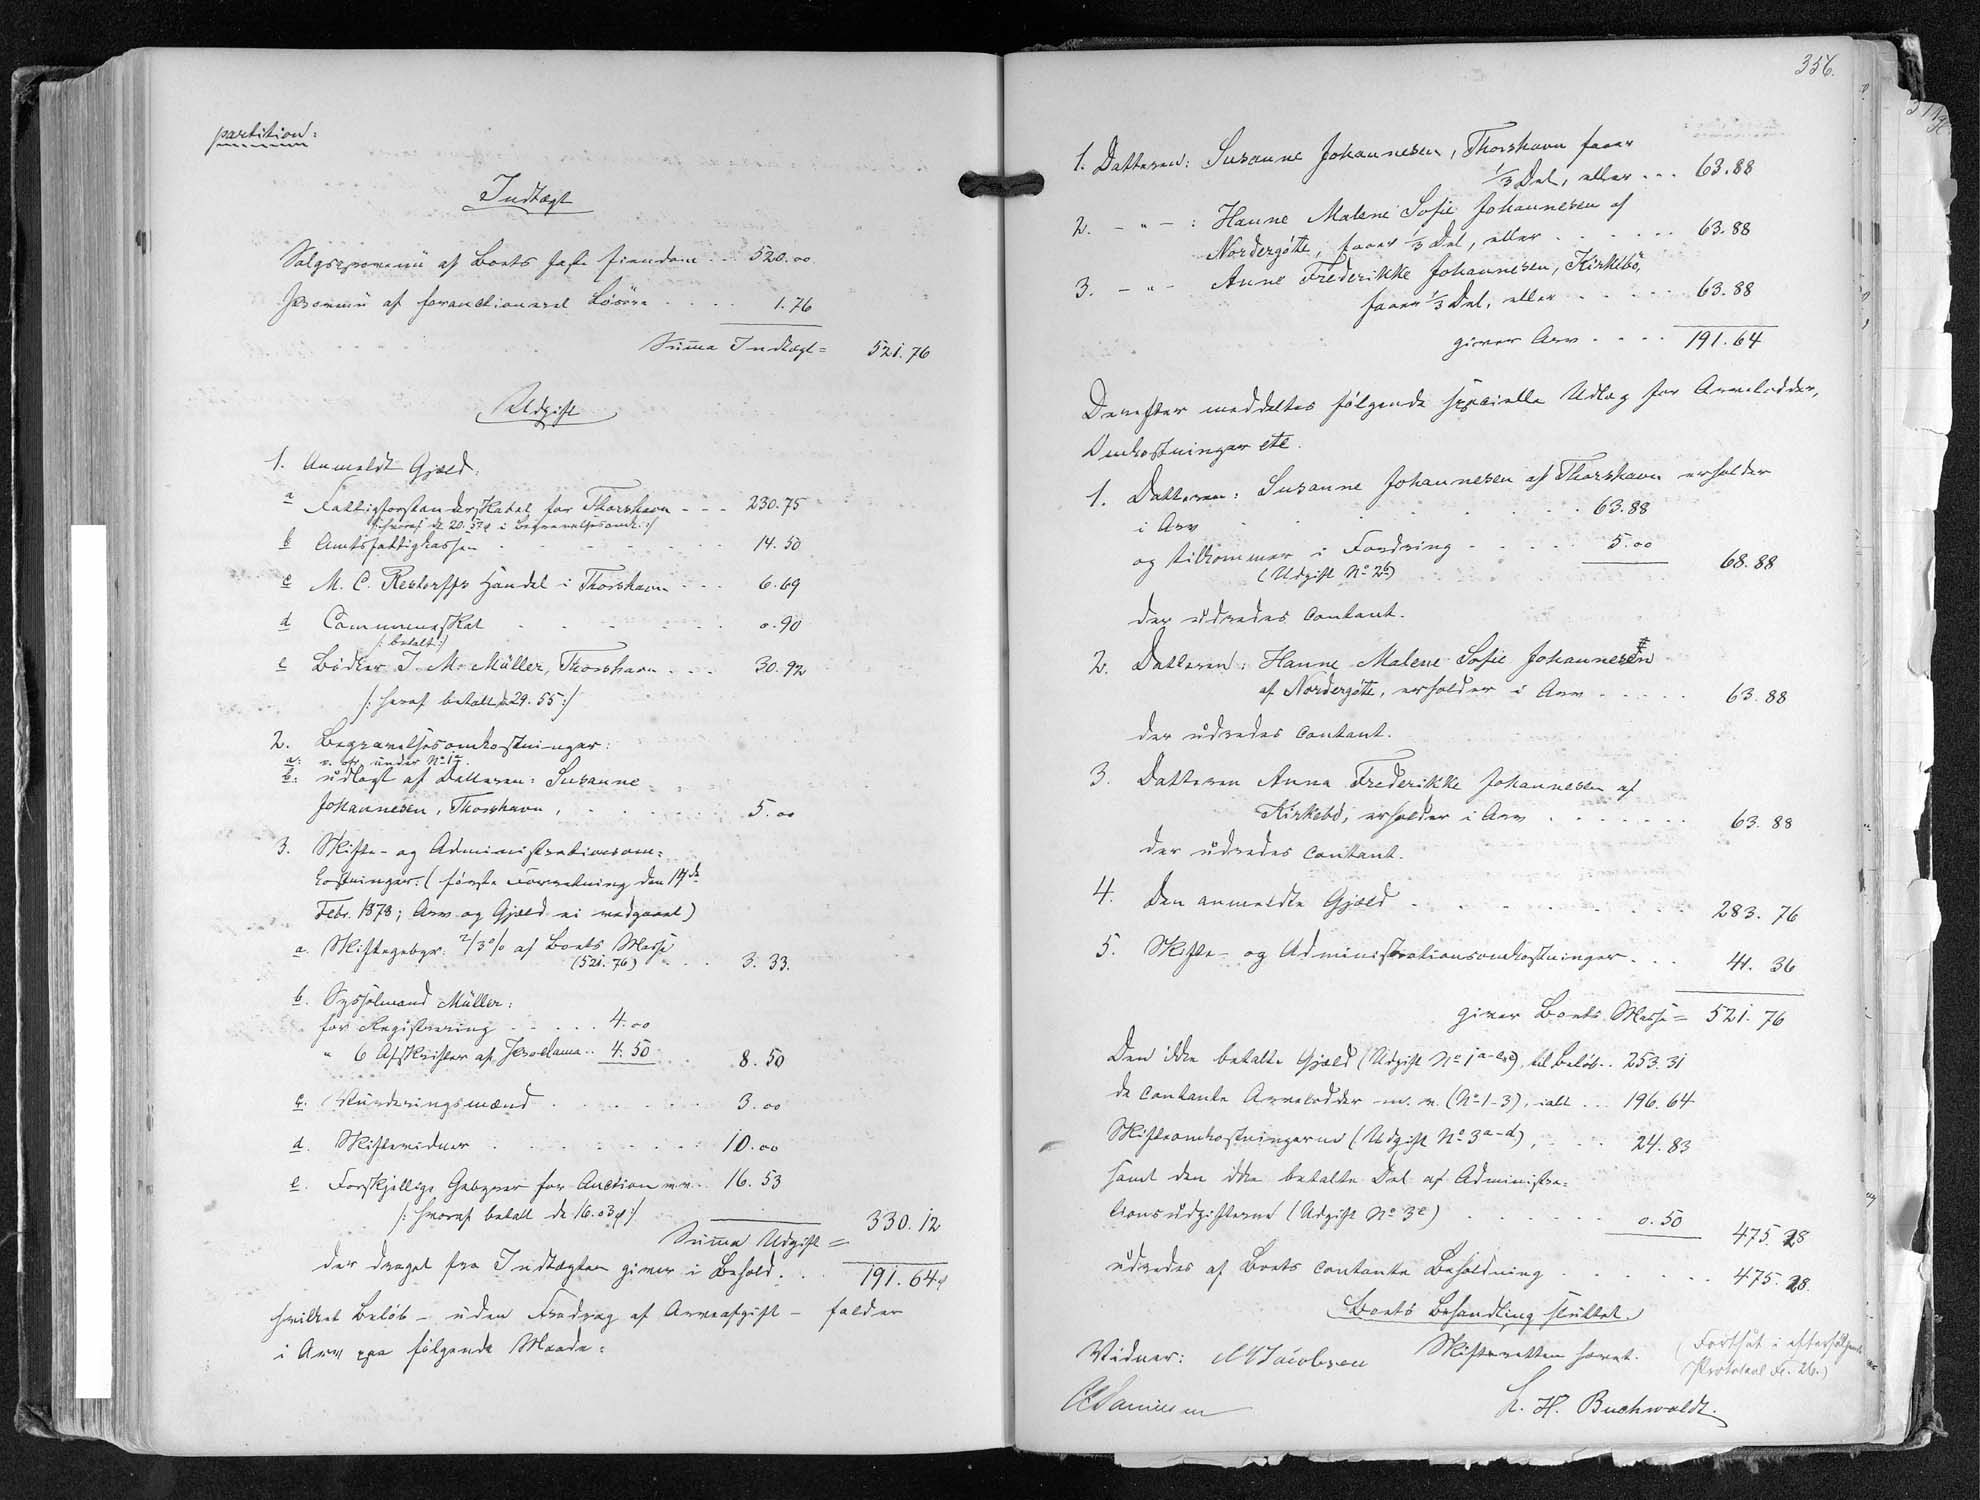 partition:
Indtægt
Salgsprovenü af Boets faste Eiendom . . 520.00
Provenü af forauctioneret Løsøre . . . . 1.76
Summa Indtægt = 521.76
Udgift
1. Anmeldt Gjæld:
a Fattigforstanderskabet for Thorshavn - - - 230.75
/: hvoraf 20. 57 i Begravelsesomk. :/
b Amtsfattigkassen . . . . . 14.50
c M. C. Restorffs Handel i Thorshavn - - - 6.69
d Communeskat . . . . . 0.90
/: betalt :/
e Bødker J. M. Müller, Thorshavn . . . 30.92
/: heraf betalt 29.55 :/
2. Begravelsesomkostninger:
a: v. under No 1a.
b: udlagt af Datteren: Susanne
Johannesen, Thorshavn, . . . . 5.00
3. Skifte- og Administrationsom-
kostninger: (første Forretning den 14de
Febr. 1878; Arv og Gjæld ei vedgaaet)
a. Skiftegebyr 2/3 % af Boets Masse
(521.76) . . 3.33.
b. Sysselmand Müller:
for Registrering . . . . . 4.00
" 6 Afskrifter af Proclama . . 4.50 8.50
c. Vurderingsmænd . . . . . 3.00
d. Skiftevidner . . . . . 10.00
e. Forskjellige Gebyrer for Auction m.v. . 16.53
/: hvoraf betalt 16.03 :/
Summa Udgift = 330.12
der draget fra Indtægten giver i Behold . . . 191.64
hvilket Beløb - uden Fradrag af Arveafgift - falder
i Arv paa følgende Maade:
356.
1. Datteren: Susanne Johannesen, Thorshavn faaer
1/3 Del, eller . . . 63.88
2. - " - : Hanne Malene Sofie Johannesen af
Nordergøtte, faaer 1/3 Del, eller . . . . . . 63.88
3. - " - Anne Frederikke Johannesen, Kirkebø,
faaer 1/3 Del, eller . . . . . 63.88
giver Arv . . . . 191.64
Derefter meddeltes følgende specielle Udlæg for Arvelodder,
Omkostninger etc.
1. Datteren: Susanne Johannesen af Thorshavn erholder
i Arv . . . . . 63.88
og tilkommer i Fordring . . . . . 5.00 68.88
(Udgift No 2b)
der udredes contant.
2. Datteren: Hanne Malene Sofie Johannesen
af Nordergøtte, erholder i Arv . . . . . 63.88
der udredes contant.
3. Datteren Anna Frederikke Johannesen af
Kirkebø, erholder i Arv . . . . . . . 63.88
der udredes contant.
4. Den anmeldte Gjæld . . . . . . . 283.76
5. Skifte- og Administrationsomkostninger . . . 41.36
giver Boets Masse = 521.76
Den ikke betalte Gjæld (Udgift No 1a-c,e) til Beløb . . 253.31
de contante Arvelodder m. v. (No 1-3), ialt . . . 196.64
Skifteomkostningerne (Udgift No 3a-d), . . . 24.83
samt den ikke betalte Del af Administra-
tionsudgifterne (Udgift No 3e) . . . . . 0.50 475.28
udredes af Boets contante Beholdning . . . . . . 475.28.
Boets Behandling sluttet.
Vidner: Jacobsen Skifteretten hævet. (Fortsat i efterfølgende
Protokol Fo. 26.)
Danielsen L. H. Buchwaldt.